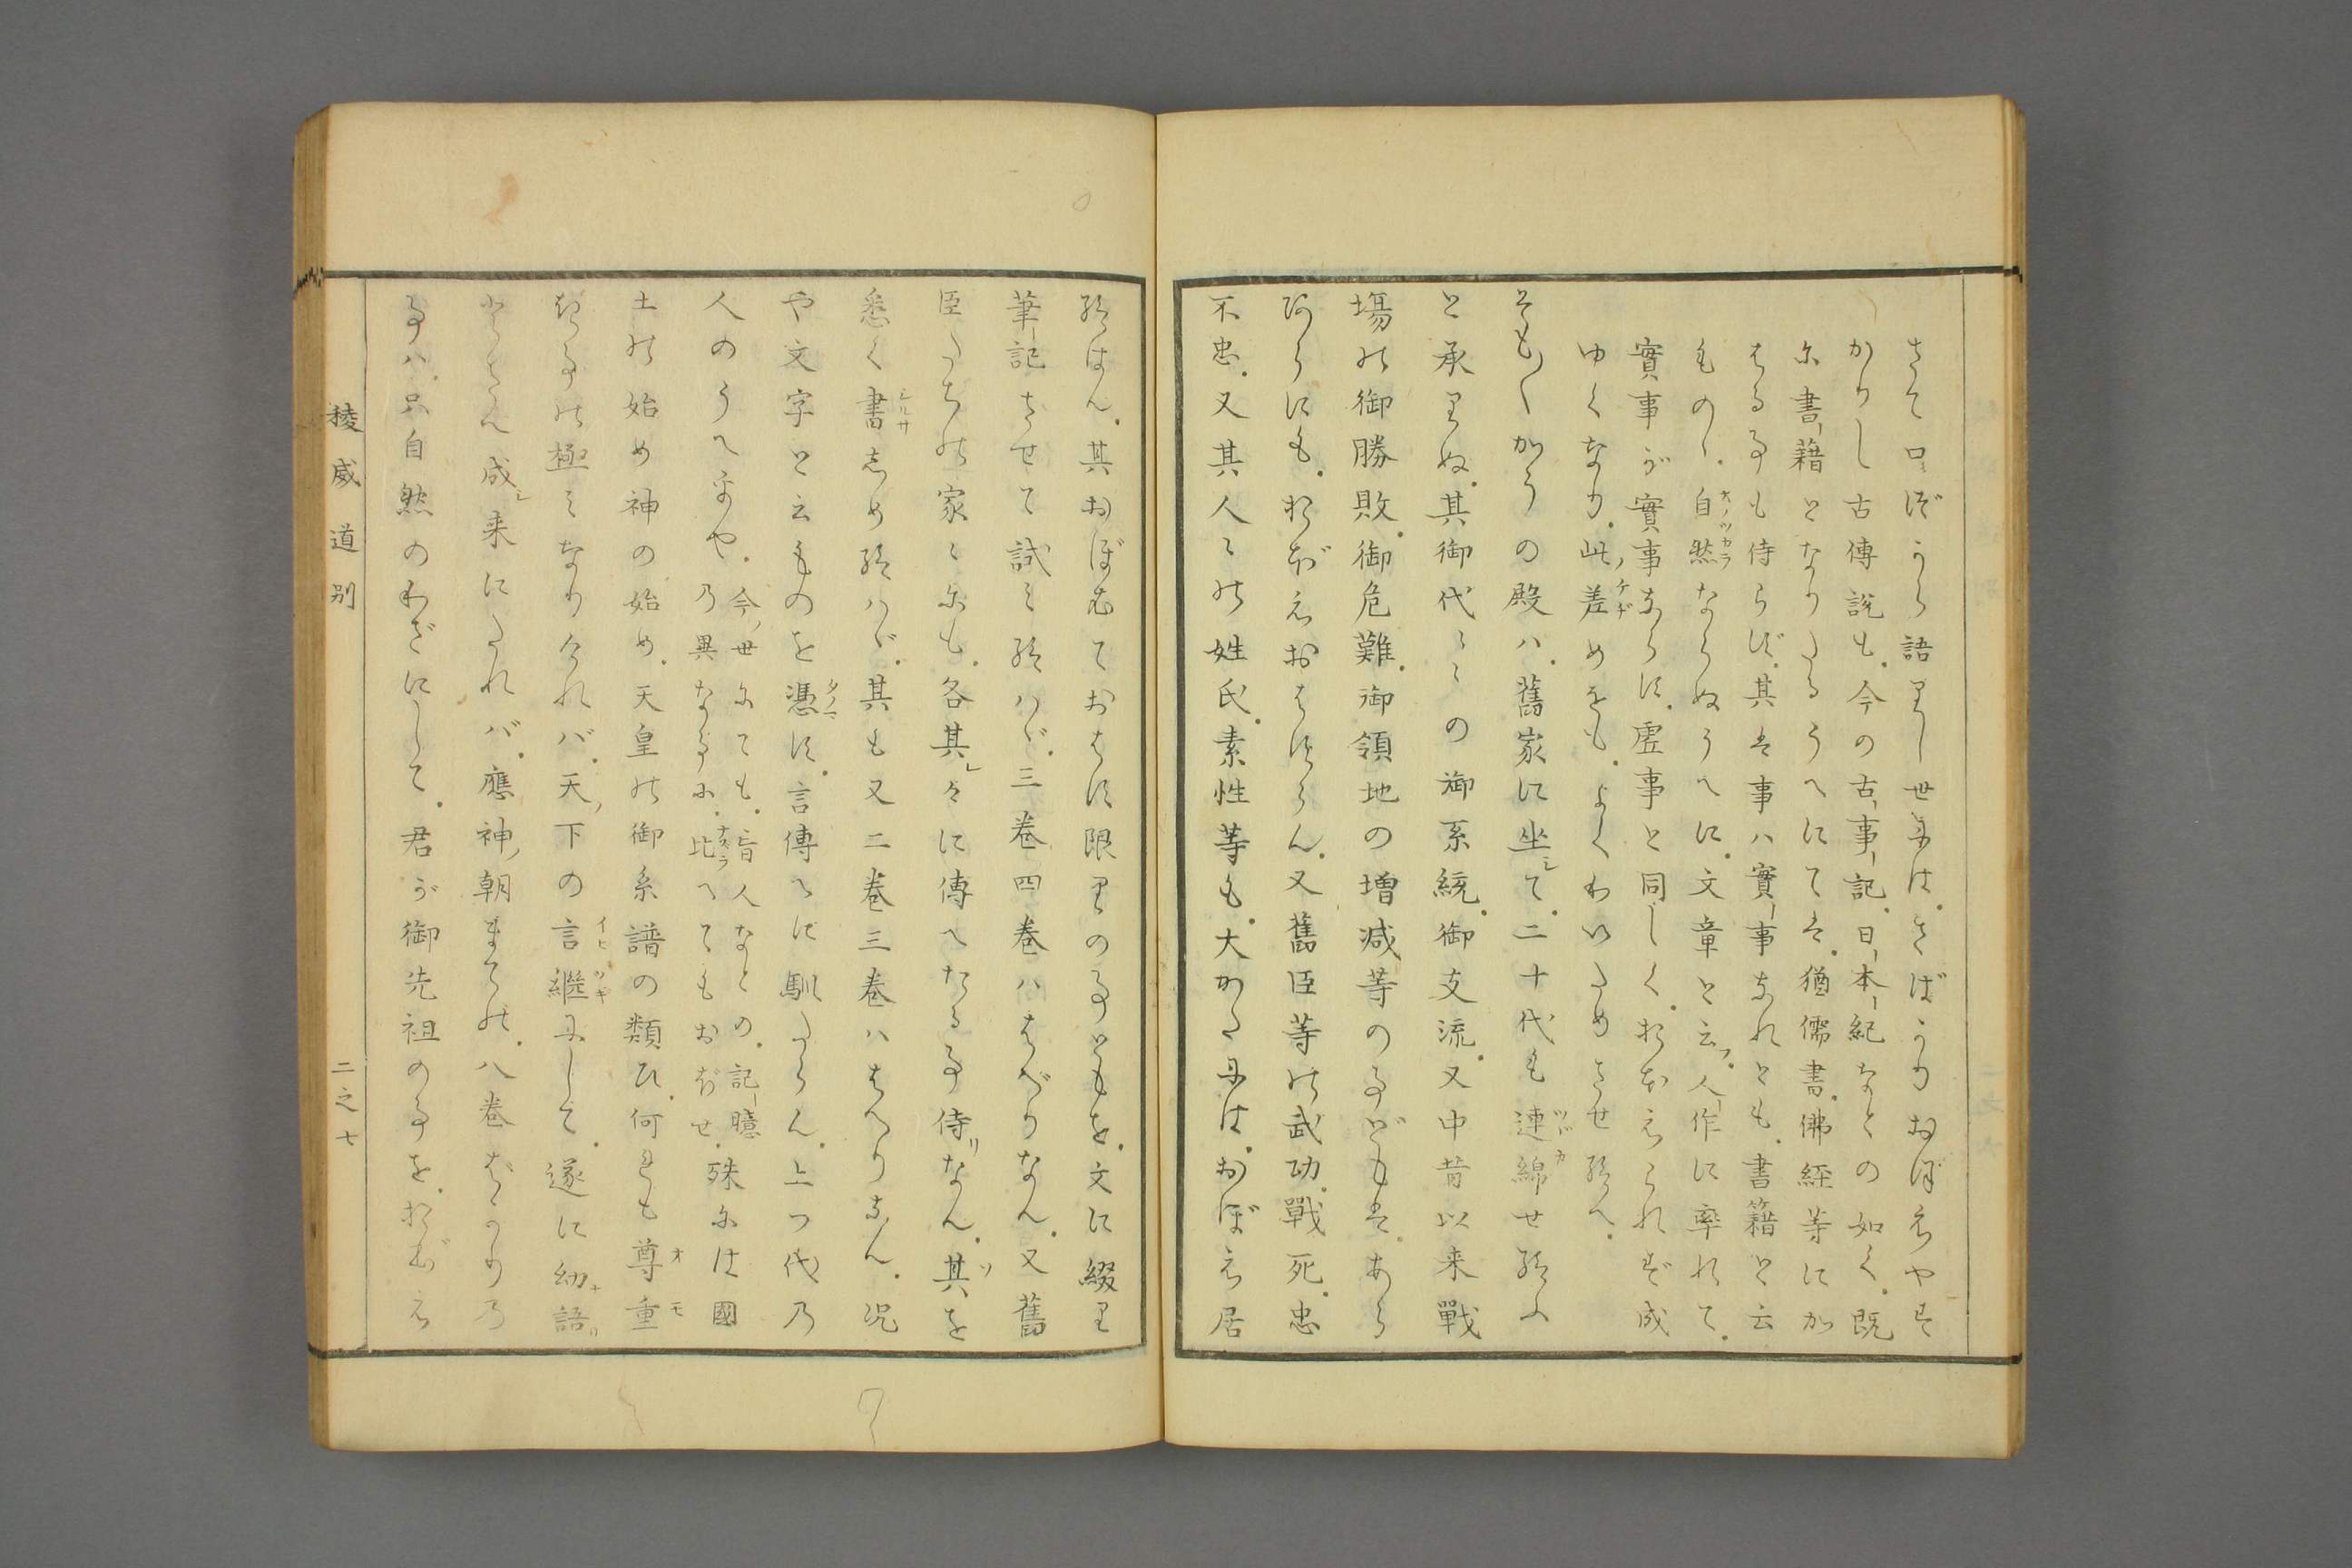 さて口づから語りし世には。さばかりおぼえやす
かりし古傳說も。今の古事記。日本紀などの如く。既
に書籍となりたるうへにては。猶儒書。佛經等にか
はる事も侍らず。其は事ハ實事なれとも。書籍と云
もの丶。自然ならぬうへに。文章と云フ。人作に率れて。
實事が實事ならず。虛事と同しく。おぼえられず成
ゆくなり。此ノ差めをも。よくわいため させ給へ。
そも〱かうの殿ハ。舊家に坐シて。二十代も連綿せ給ふ
と承りぬ。其御代〻の御系統。御支流。又中昔以来戰
場の御勝敗。御危難。御領地の増減等の事どもは。あら
あらにも。おぼえおはすらん。又舊臣等の武功。戰死。忠
不忠。又其人〻の姓氏。素性等も。大かたには。おぼえ居
給はん。其おぼむておはす限りの事どもを。文に綴り
筆記させて試ミ給ハヾ。三巻四巻ハはべりなん。又舊
臣たちの家〻にも。各其レ〻に傳へたる事侍リなん。其を
悉く書しめ給ハヾ。其も又二巻三巻ハはべりなん。况
や文字と云ものを憑まず。言傳へに馴たらん。上つ代乃
人のうへをや。今ノ世にても。盲人なとの。記臆
乃異なる事に。比へてもおぼせ。殊には國
土の始め神の始め。天皇の御系譜の類ひ。何れも尊重
き事の極ミなりけれバ。天ノ下の言繼にして。遂に幼語リ
とさへ成シ来にたれバ。應神ノ朝までの。八巻ばかり乃
事ハ。只自然のわざにして。君が御先祖の事を。おぼえ
稜威道別
二之七